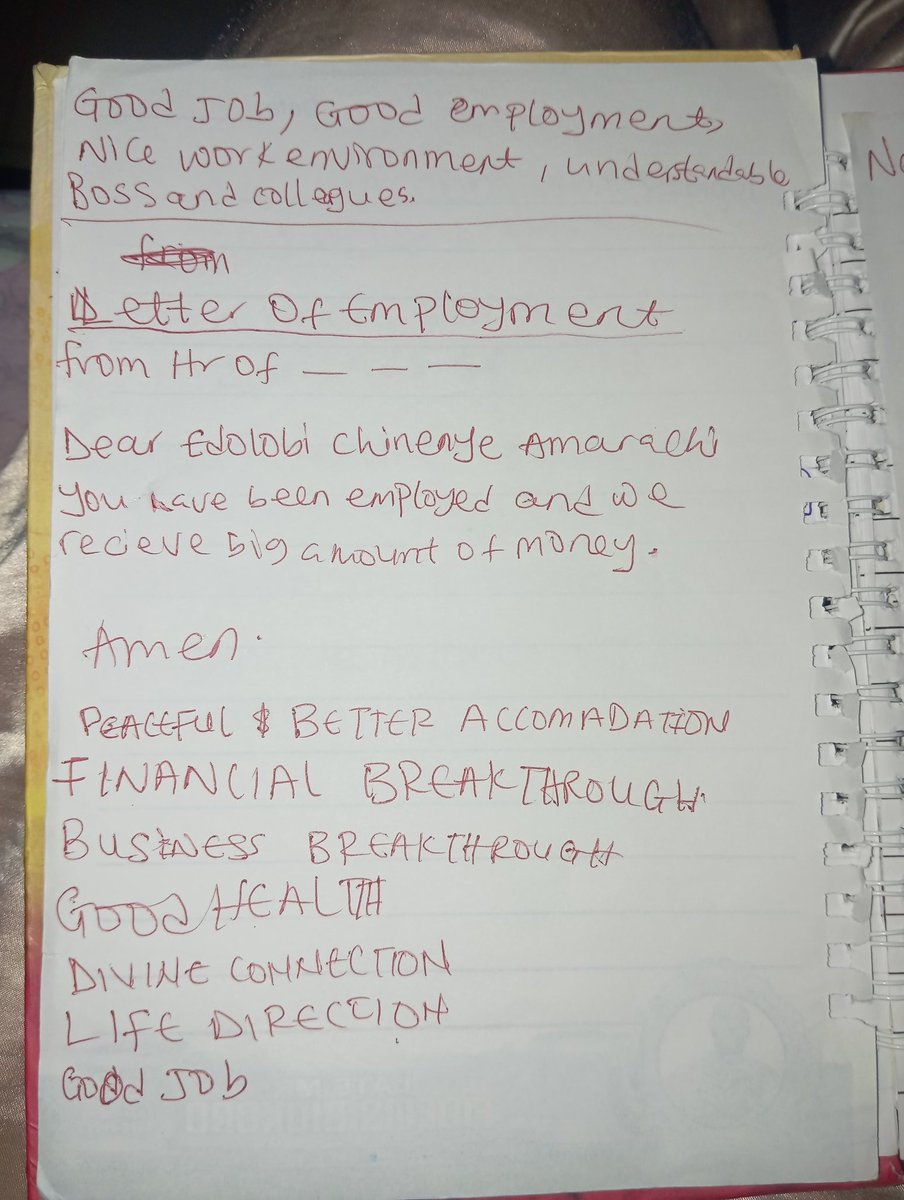 Good Job, Good employment,
Nice work environment, understandable
Boss and collegues.
from
Letter Of Employment
from Hr Of — — —
Dear Edolobi Chinenye Amarachi
you have been employed and we
recieve big amount of money.
Amen.
PEACEFUL & BETTER ACCOMADATION
FINANCIAL BREAKTHROUGH.
BUSINESS BREAKTHROUGH
GOOD HEALTH
DIVINE CONNECTION
LIFE DIRECTION
GOOd JOb